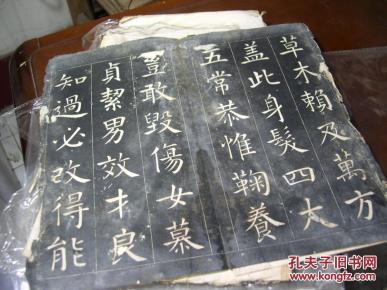 草木賴及萬方
盖此身髮四大
五常恭惟鞠養
豈敢毀傷女慕
貞絜男效才良
知過必改得能
孔夫子旧书网